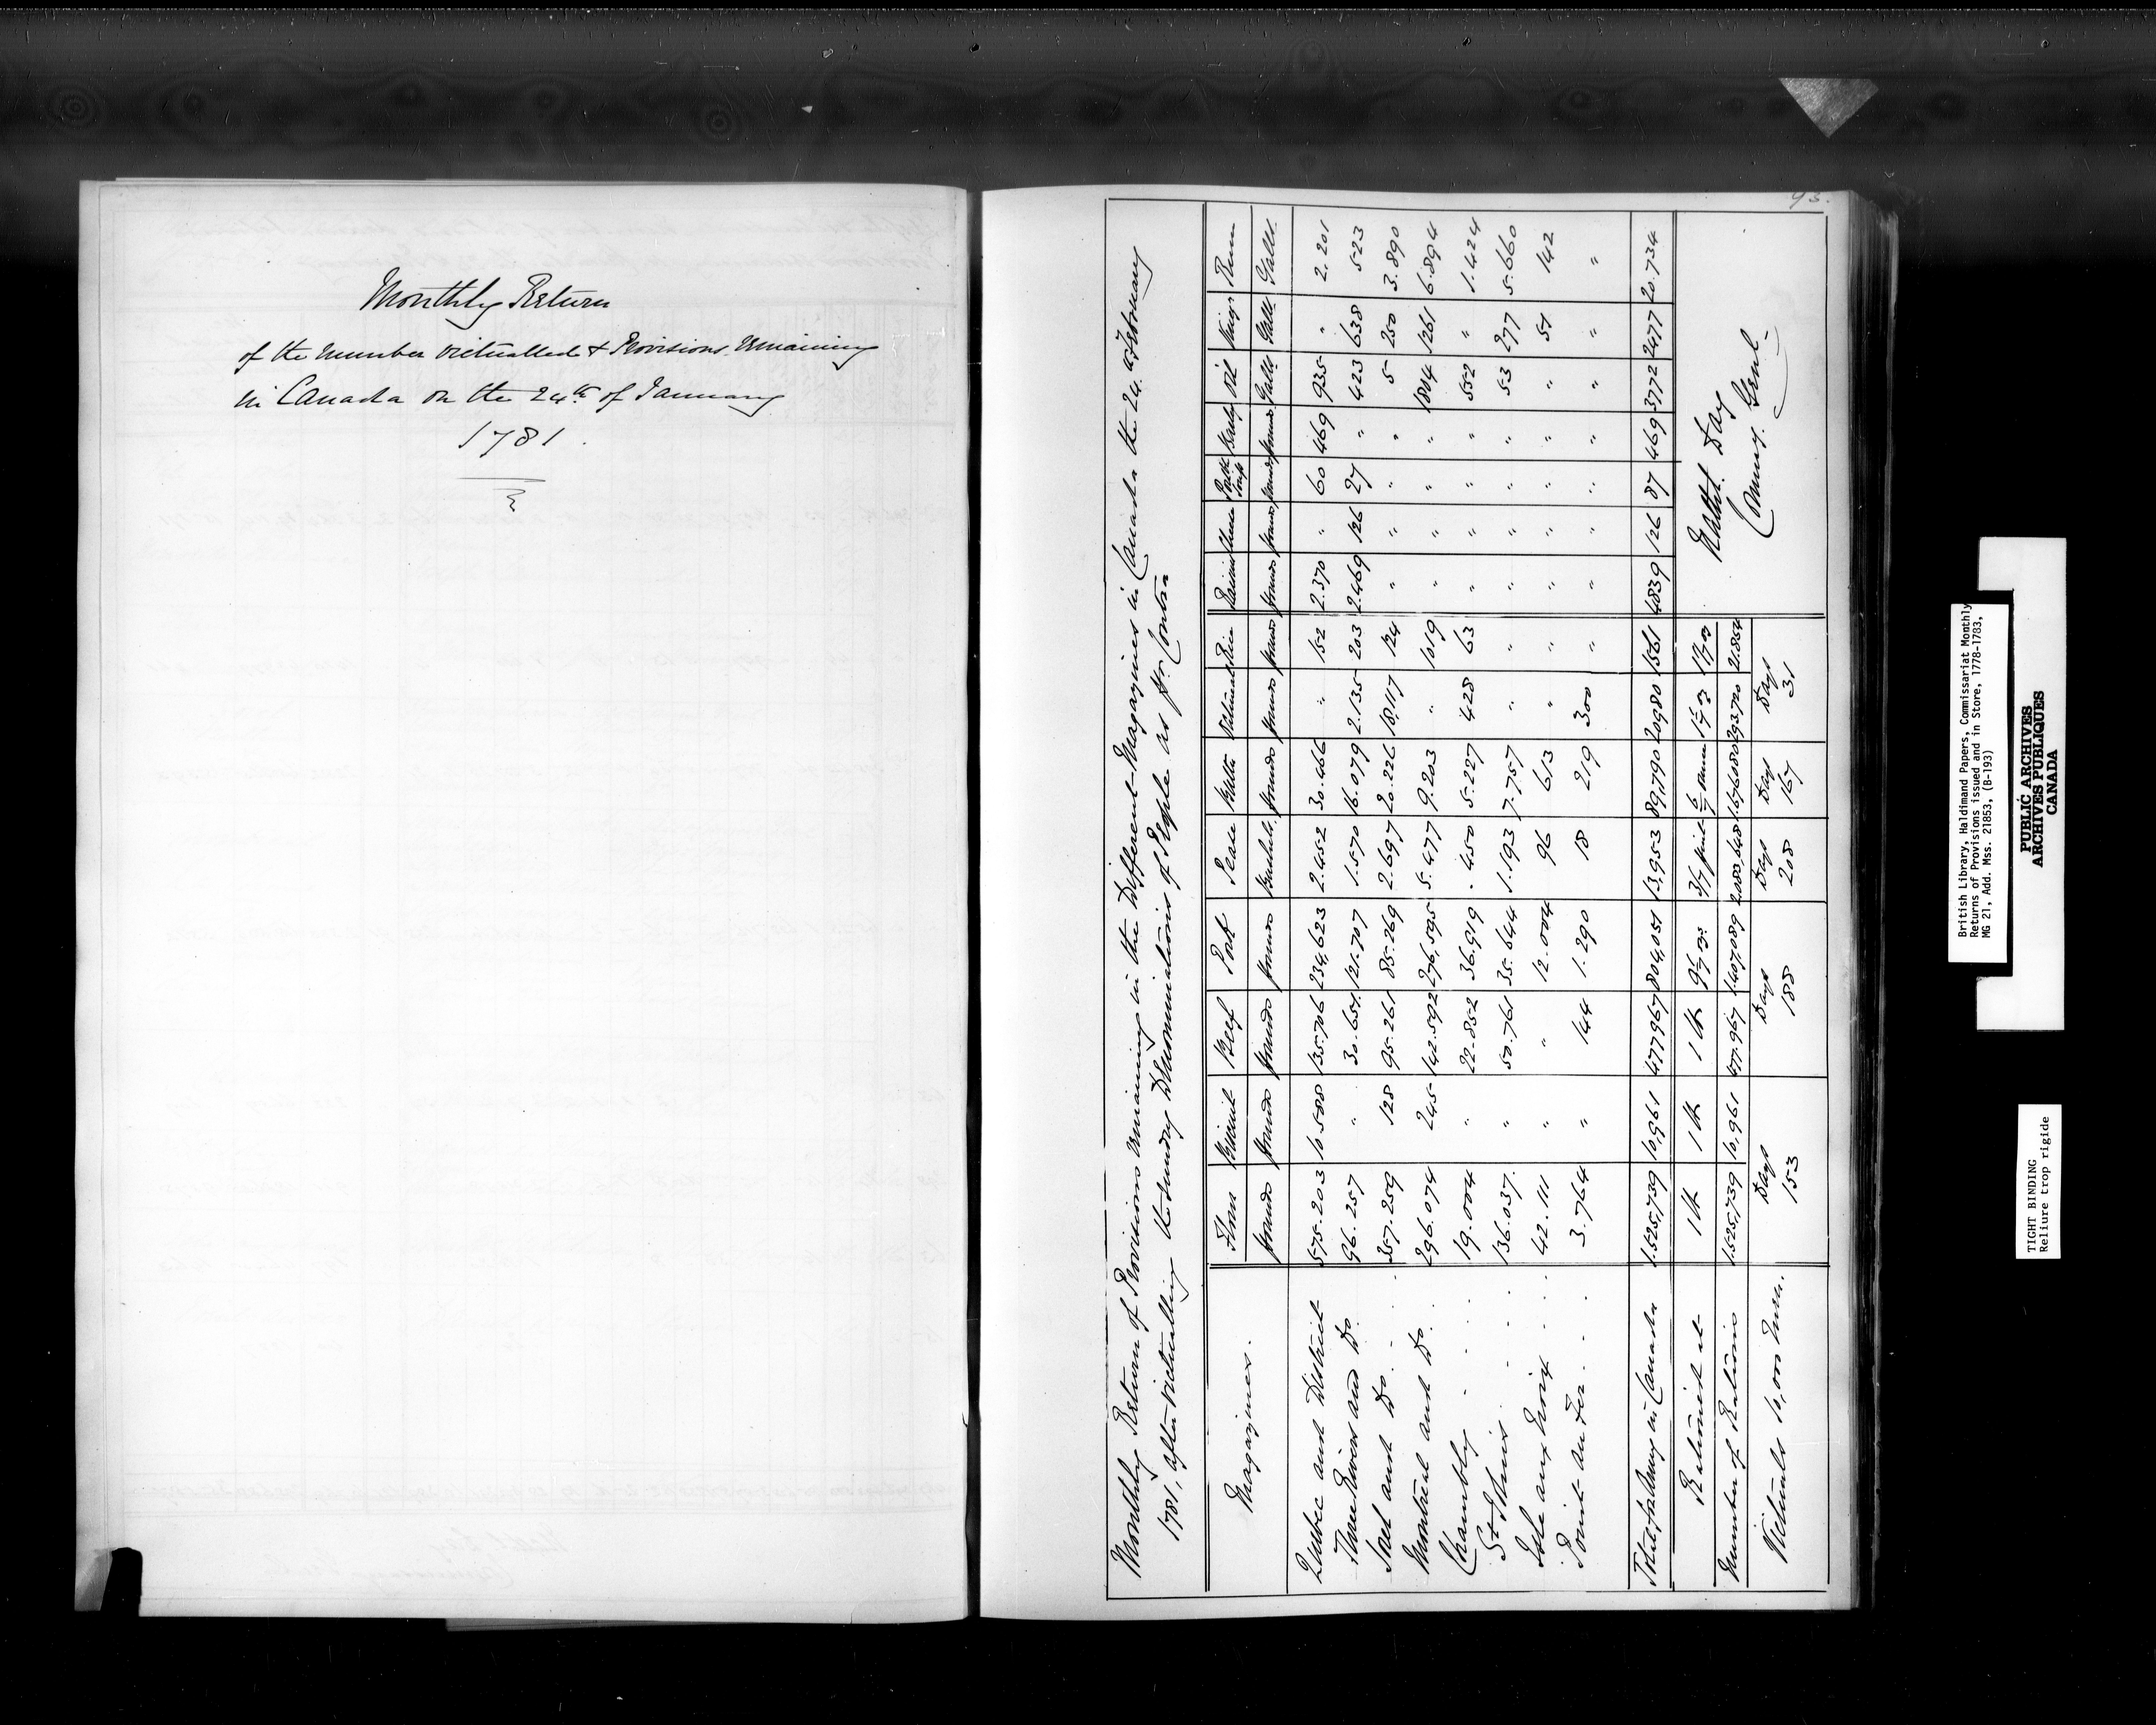 Monthly Return
of the number victualled & Provisions remaining
in Canada on the 24th of January
1781.
93.
Monthly Return of Provisions remaining in the Different Magazines in Canada the 24. February
1781, after victualling the sundry Denominations of People as pr. Contra
Magazines. Flour Biscuit Beef Pork Pease Butter Oatmeal Rice Raisins Cheese Barley Oil Vinegr Rum
Pounds Pounds Pounds Pounds Bushels. Pounds Pounds Pounds Pounds Pounds Pounds Pounds Galls Galls Galls.
Quebec and District 575.203 10.588 135.706 234,623 2.452 30.466 " 152 2.370 " 60 469 935 " 2.201
Three Rivers and Do. 96.257 " 30.651. 121.707 1.570 16.079 2.135 203 2.469 126 27 " 423 638 523
Sorel and Do. 357.259 128 95.261 85.269 2.697 20.226 18,117 124 " " " " 5 250 3.890
Montreal and Do. 296.074 245 142.592 276,595 5.477 9.203 " 1019 " " " " 1804 1261 6.894
Chambly 19.004 " 22.852 36.919 .450 5.227 428 63 " " " " 552 " 1.424
St Johns 136.037. " 50.761 35.644 1.193 7.757 " " " " " " 53 277 5.660
Isle aux Noix 42.111 " " 12.004 96 613 " " " " " " " 51 142
Point au Fer 3.764 " 144 1.290 18 219 300 " " " " " " " "
Total for Army in Canada 1.525,739 10,961 477967 804,051 13,953 89,790 20980 1561 4839 126 87 469 3772 2477 20.734
Rationed at 1 lb 1 lb 1 lb 9 1/7 oz. 3/7 pint 6/7 ounce 1 1/7 oz
Number of Rations 1.525,739 10.961 477.967 1.407,089 2.080,648 1.676080 293720 2.854
Victuals 10,000 Men. Days 153 Days 188 Days 208 Days 167 Days 31
Nathl. Day
Commy. Genl.
British Library, Haldimand Papers, Commissariat Monthly
Returns of Provisions issued and in Store, 1778-1783,
MG 21, Add. Mss. 21853, (B-193)
PUBLIC ARCHIVES
ARCHIVES PUBLIQUES
CANADA
TIGHT BINDING
Reliure trop rigide